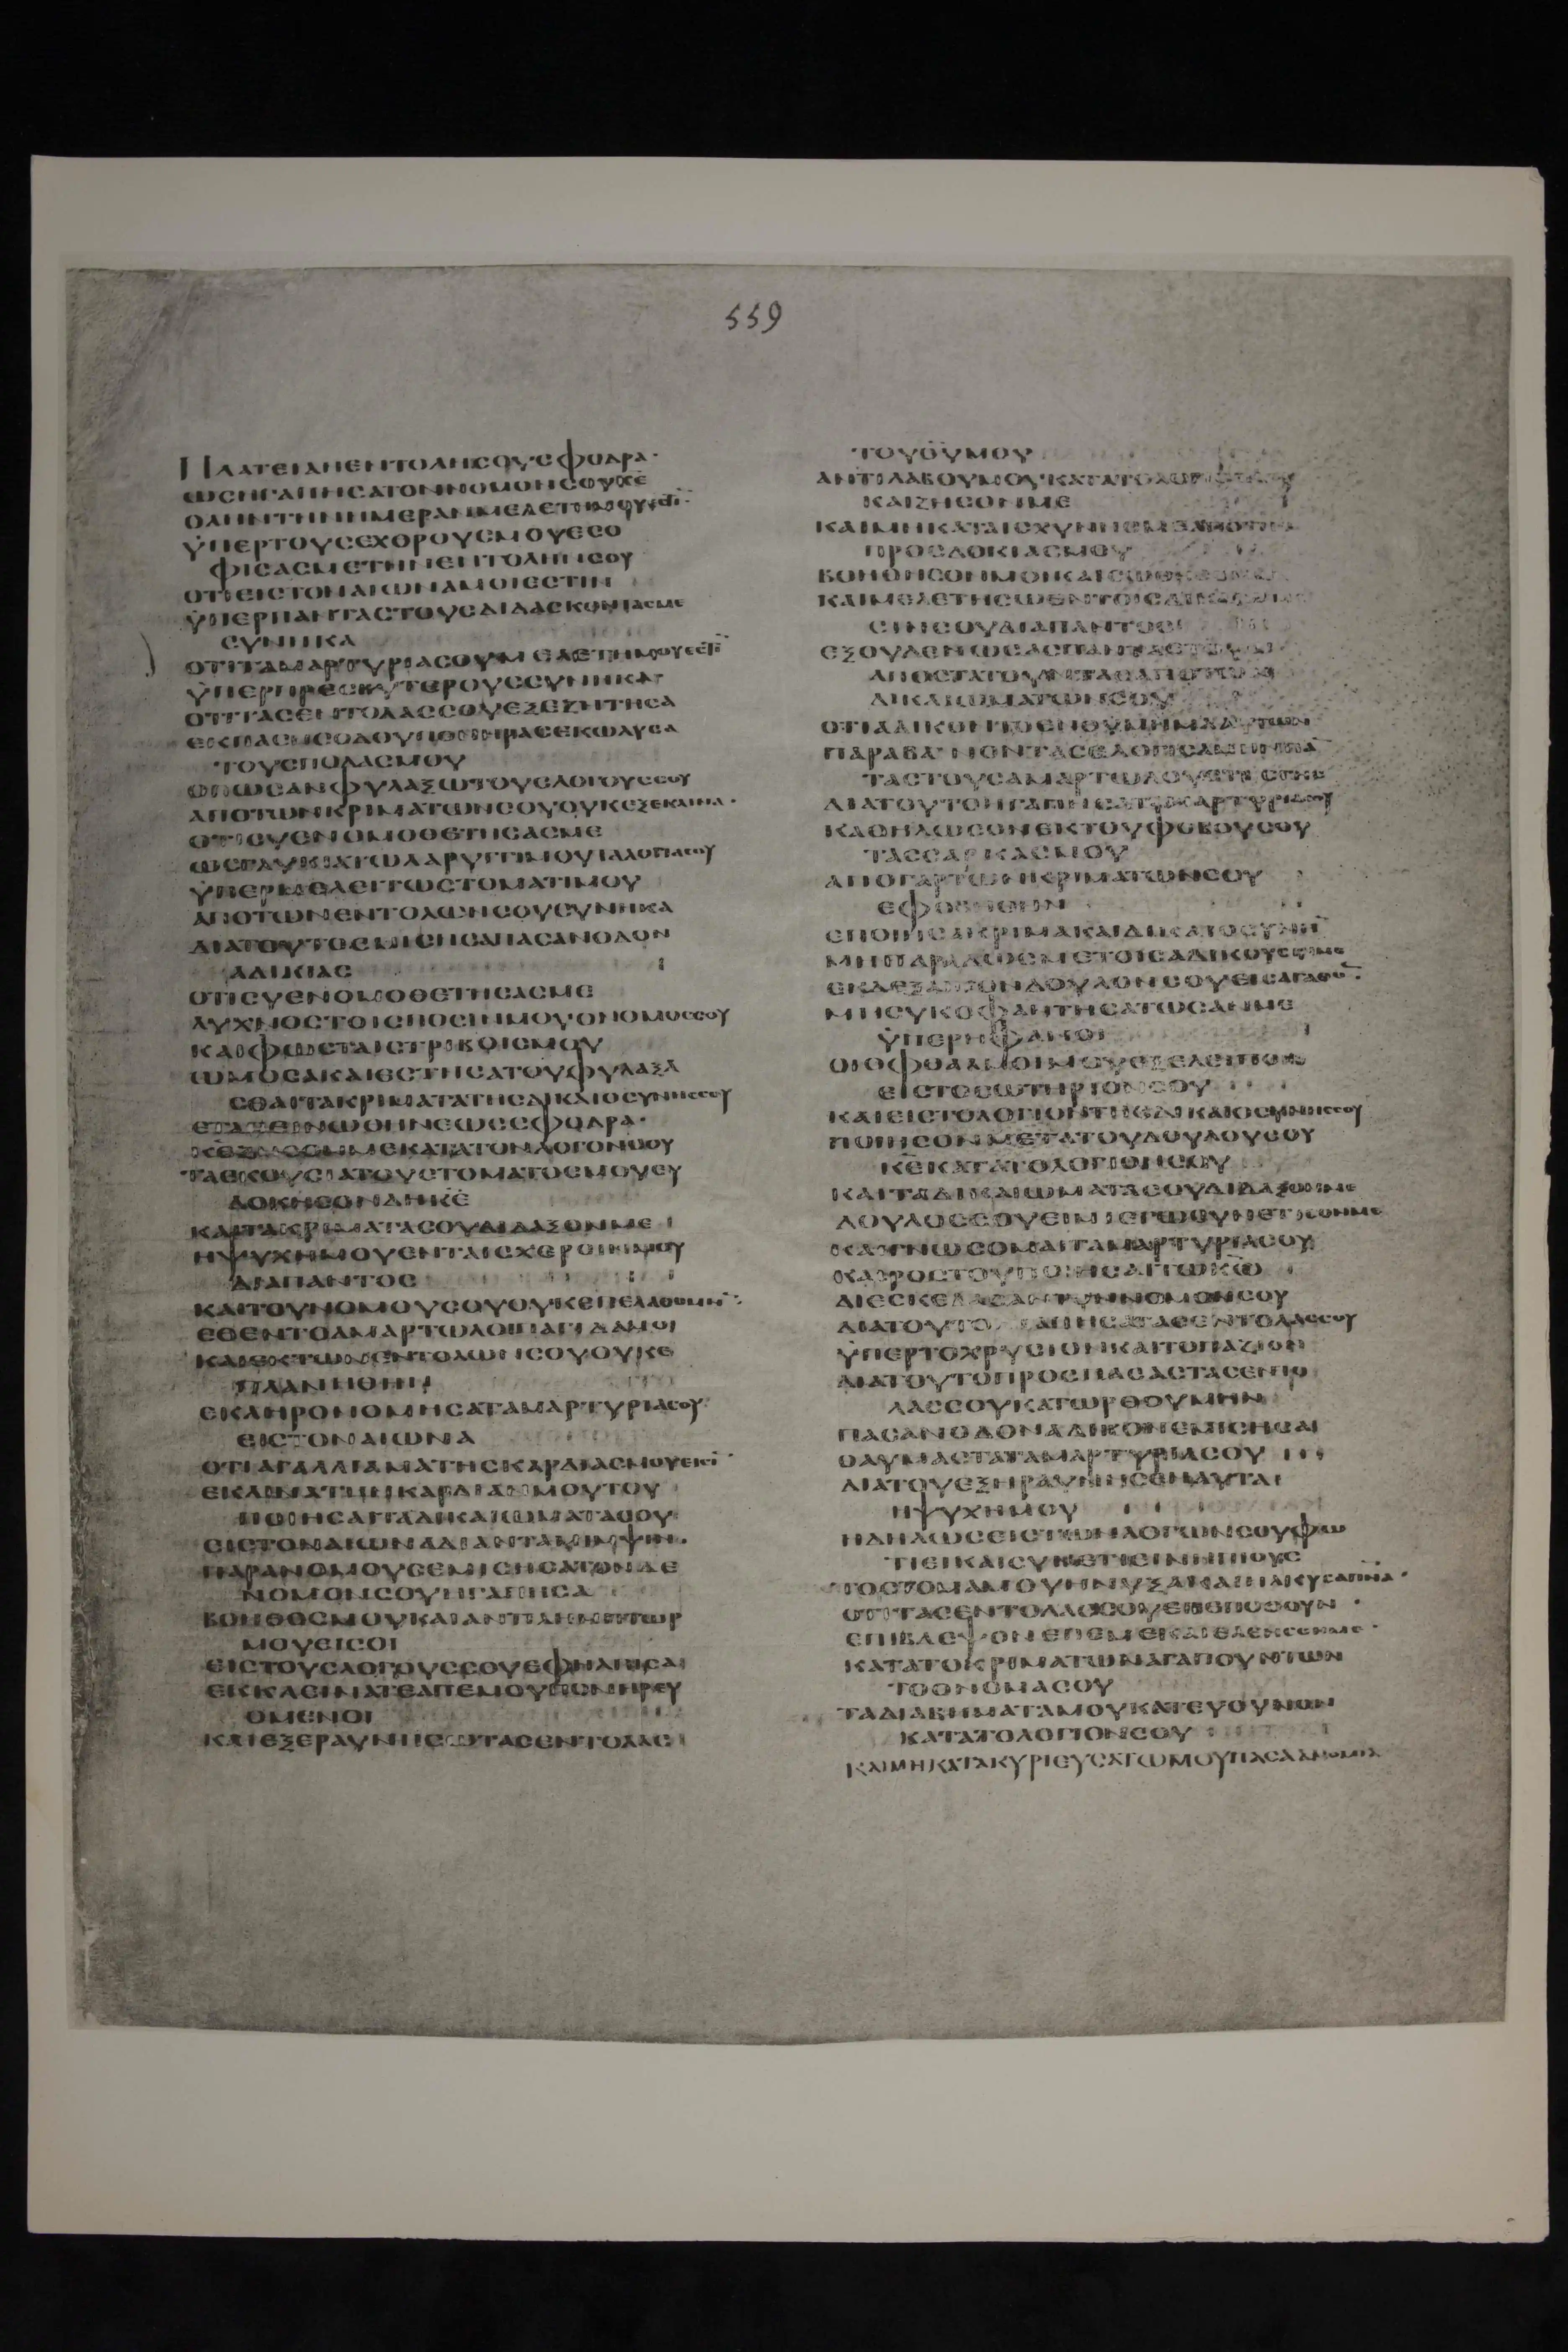 559
ΠΛΑΤΕΙΑΗΕΝΤΟΛΗΣΟΥΣΦΟΔΡΑ·
ΩΣΗΓΑΠΗΣΑΤΟΝΝΟΜΟΝΣΟΥΚΕ
ΟΛΗΝΤΗΝΗΜΕΡΑΝΜΕΛΕΤΗΜΟΥΕΣΤΙ
ΫΠΕΡΤΟΥΣΕΧΘΡΟΥΣΜΟΥΕΣΟ
ΦΙΣΑΣΜΕΤΗΝΕΝΤΟΛΗΝΣΟΥ
ΟΤΙΕΙΣΤΟΝΑΙΩΝΑΜΟΙΕΣΤΙΝ
ΫΠΕΡΠΑΝΤΑΣΤΟΥΣΔΙΔΑΣΚΟΝΤΑΣΜΕ
ΣΥΝΗΚΑ
ΟΤΙΤΑΜΑΡΤΥΡΙΑΣΟΥΜΕΛΕΤΗΜΟΥΕΣΤΙ
ΫΠΕΡΠΡΕΣΒΥΤΕΡΟΥΣΣΥΝΗΚΑ
ΟΤΙΤΑΣΕΝΤΟΛΑΣΣΟΥΕΞΕΖΗΤΗΣΑ
ΤΟΥΣΠΟΔΑΣΜΟΥ
ΟΠΩΣΑΝΦΥΛΑΞΩΤΟΥΣΛΟΓΟΥΣΣΟΥ
ΑΠΟΤΩΝΚΡΙΜΑΤΩΝΣΟΥΟΥΚΕΞΕΚΛΙΝΑ·
ΟΤΙΣΥΕΝΟΜΟΘΕΤΗΣΑΣΜΕ
ΩΣΓΛΥΚΕΑΤΩΛΑΡΥΓΓΙΜΟΥΤΑΛΟΓΙΑΣΟΥ
ΫΠΕΡΜΕΛΕΙΤΩΣΤΟΜΑΤΙΜΟΥ
ΑΠΟΤΩΝΕΝΤΟΛΩΝΣΟΥΣΥΝΗΚΑ
ΔΙΑΤΟΥΤΟΕΜΙΣΗΣΑΠΑΣΑΝΟΔΟΝ
ΑΔΙΚΙΑΣ
ΟΤΙΣΥΕΝΟΜΟΘΕΤΗΣΑΣΜΕ
ΛΥΧΝΟΣΤΟΙΣΠΟΣΙΝΜΟΥΟΝΟΜΟΣΣΟΥ
ΚΑΙΦΩΣΤΑΙΣΤΡΙΒΟΙΣΜΟΥ
ΩΜΟΣΑΚΑΙΕΣΤΗΣΑΤΟΥΦΥΛΑΞΑ
ΣΘΑΙΤΑΚΡΙΜΑΤΑΤΗΣΔΙΚΑΙΟΣΥΝΗΣΣΟΥ
ΕΤΑΠΕΙΝΩΘΗΝΕΩΣΣΦΟΔΡΑ·
ΚΕΖΗΣΟΝΜΕΚΑΤΑΤΟΝΛΟΓΟΝΣΟΥ
ΤΑΕΚΟΥΣΙΑΤΟΥΣΤΟΜΑΤΟΣΜΟΥΕΥ
ΔΟΚΗΣΟΝΔΗΚΕ
ΚΑΙΤΑΚΡΙΜΑΤΑΣΟΥΔΙΔΑΞΟΝΜΕ
ΗΨΥΧΗΜΟΥΕΝΤΑΙΣΧΕΡΣΙΝΜΟΥ
ΔΙΑΠΑΝΤΟΣ
ΚΑΙΤΟΥΝΟΜΟΥΣΟΥΟΥΚΕΠΕΛΑΘΟΜΗΝ
ΕΘΕΝΤΟΑΜΑΡΤΩΛΟΙΠΑΓΙΔΑΜΟΙ
ΚΑΙΕΚΤΩΝΕΝΤΟΛΩΝΣΟΥΟΥΚΕ
ΠΛΑΝΗΘΗΝ
ΕΚΛΗΡΟΝΟΜΗΣΑΤΑΜΑΡΤΥΡΙΑΣΟΥ
ΕΙΣΤΟΝΑΙΩΝΑ
ΟΤΙΑΓΑΛΛΙΑΜΑΤΗΣΚΑΡΔΙΑΣΜΟΥΕΙΣΙ
ΕΚΛΙΝΑΤΗΝΚΑΡΔΙΑΝΜΟΥΤΟΥ
ΠΟΙΗΣΑΙΤΑΔΙΚΑΙΩΜΑΤΑΣΟΥ
ΕΙΣΤΟΝΑΙΩΝΑΔΙΑΝΤΑΜΙΜΨΙΝ·
ΠΑΡΑΝΟΜΟΥΣΕΜΙΣΗΣΑΤΟΝΔΕ
ΝΟΜΟΝΣΟΥΗΓΑΠΗΣΑ
ΒΟΗΘΟΣΜΟΥΚΑΙΑΝΤΙΛΗΜΠΤΩΡ
ΜΟΥΕΙΣΟΙ
ΕΙΣΤΟΥΣΛΟΓΟΥΣΣΟΥΕΦΗΛΠΙΣΑ
ΕΚΚΛΕΙΝΑΤΕΑΠΕΜΟΥΠΟΝΗΡΕΥ
ΟΜΕΝΟΙ
ΚΑΙΕΞΕΡΑΥΝΗΣΩΤΑΣΕΝΤΟΛΑΣ
ΤΟΥΘΥΜΟΥ
ΑΝΤΙΛΑΒΟΥΜΟΥΚΑΤΑΤΟΛΟΓΙΟΝΣΟΥ
ΚΑΙΖΗΣΟΝΜΕ
ΠΡΟΣΔΟΚΙΑΣΜΟΥ
ΒΟΗΘΗΣΟΝΜΟΙΚΑΙΣΩΘΗΣΟΜΑΙ
ΚΑΙΜΕΛΕΤΗΣΩΕΝΤΟΙΣΔΙΚΑΙΩΜΑ
ΣΙΝΣΟΥΔΙΑΠΑΝΤΟΣ
ΕΞΟΥΔΕΝΩΣΑΣΠΑΝΤΑΣΤΟΥΣ
ΔΙΚΑΙΩΜΑΤΩΝΣΟΥ
ΟΤΙΑΔΙΚΟΝΤΟΕΝΘΥΜΗΜΑΑΥΤΩΝ
ΤΑΣΤΟΥΣΑΜΑΡΤΩΛΟΥΣΤΗΣΓΗΣ
ΔΙΑΤΟΥΤΟΗΓΑΠΗΣΑΤΑΜΑΡΤΥΡΙΑΣΟΥ
ΚΑΘΗΛΩΣΟΝΕΚΤΟΥΦΟΒΟΥΣΟΥ
ΤΑΣΣΑΡΚΑΣΜΟΥ
ΑΠΟΓΑΡΤΩΝΚΡΙΜΑΤΩΝΣΟΥ
ΕΦΟΒΗΘΗΝ
ΕΠΟΙΗΣΑΚΡΙΜΑΚΑΙΔΙΚΑΙΟΣΥΝΗ
ΜΗΠΑΡΑΔΩΣΜΕΤΟΙΣΑΔΙΚΟΥΣΙΜΕ
ΕΚΔΕΞΑΙΤΟΝΔΟΥΛΟΝΣΟΥΕΙΣΑΓΑΘΟ
ΜΗΣΥΚΟΦΑΝΤΗΣΑΤΩΣΑΝΜΕ
ΫΠΕΡΗΦΑΝΟΙ
ΟΙΟΦΘΑΛΜΟΙΜΟΥΕΞΕΛΕΙΠΟΝ
ΕΙΣΤΟΣΩΤΗΡΙΟΝΣΟΥ
ΚΑΙΕΙΣΤΟΛΟΓΙΟΝΤΗΣΔΙΚΑΙΟΣΥΝΗΣΣΟΥ
ΠΟΙΗΣΟΝΜΕΤΑΤΟΥΔΟΥΛΟΥΣΟΥ
ΚΑΙΤΑΔΙΚΑΙΩΜΑΤΑΣΟΥΔΙΔΑΞΟΝΜΕ
ΔΟΥΛΟΣΣΟΥΕΙΜΙΕΓΩΣΥΝΕΤΙΣΟΝΜΕ
ΚΑΙΓΝΩΣΟΜΑΙΤΑΜΑΡΤΥΡΙΑΣΟΥ
ΚΑΙΡΟΣΤΟΥΠΟΙΗΣΑΙΤΩΚΩ
ΔΙΕΣΚΕΔΑΣΑΝΤΟΝΝΟΜΟΝΣΟΥ
ΫΠΕΡΤΟΧΡΥΣΙΟΝΚΑΙΤΟΠΑΖΙΟΝ
ΔΙΑΤΟΥΤΟΠΡΟΣΠΑΣΑΣΤΑΣΕΝΤΟ
ΛΑΣΣΟΥΚΑΤΩΡΘΟΥΜΗΝ
ΠΑΣΑΝΟΔΟΝΑΔΙΚΟΝΕΜΙΣΗΣΑ
ΘΑΥΜΑΣΤΑΤΑΜΑΡΤΥΡΙΑΣΟΥ
ΔΙΑΤΟΥΕΞΗΡΑΥΝΗΣΕΝΑΥΤΑ
ΗΨΥΧΗΜΟΥ
ΗΔΗΛΩΣΕΙΣΤΩΝΛΟΓΩΝΣΟΥΦΩ
ΤΙΕΙΚΑΙΣΥΝΕΤΙΕΙΝΗΠΙΟΥΣ
ΤΟΣΤΟΜΑΜΟΥΗΝΥΞΑΚΑΙΗΛΚΥΣΑΠΝΑ·
ΟΤΙΤΑΣΕΝΤΟΛΑΣΣΟΥΕΠΕΠΟΘΟΥΝ
ΕΠΙΒΛΕΨΟΝΕΠΕΜΕΚΑΙΕΛΕΗΣΟΝΜΕ·
ΚΑΤΑΤΟΚΡΙΜΑΤΩΝΑΓΑΠΟΥΝΤΩΝ
ΤΟΟΝΟΜΑΣΟΥ
ΤΑΔΙΑΒΗΜΑΤΑΜΟΥΚΑΤΕΥΘΥΝΟΝ
ΚΑΤΑΤΟΛΟΓΙΟΝΣΟΥ
ΚΑΙΜΗΚΑΤΑΚΥΡΙΕΥΣΑΤΩΜΟΥΠΑΣΑΑΝΟΜΙΑ